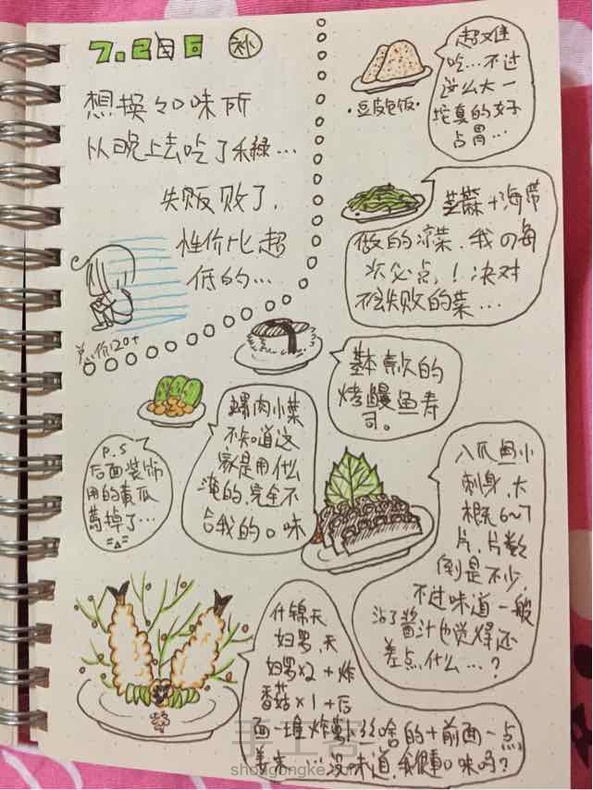 7.2日 补
想换々口味所
以晚上去吃了禾绿…
失贩败了.
性价比超
低的…
总价120+
·豆皮包饭·
超难
吃…不过
这么大一
坨真的好
占胃…
海带
做的凉菜.我の每
次必点.！决对
不会失败的菜…
基本款的
烤鳗鱼寿
司。
螺肉小菜
不知道这
家是用什么
淹的.完全不
合我的口味
P.S
后面装饰
用的黄瓜
蔫掉了…
八爪鱼小
刺身.大
概6~7
片.片数
倒是不少.
不过味道一般
沾了酱汁也觉得还
差点什么…？
什锦天
妇罗.天
妇罗×2+炸
香菇×1+后
面一堆炸虾丝啥的+前面一点
姜末 …没味道.我重口味吗？
手工客
shougongke.com